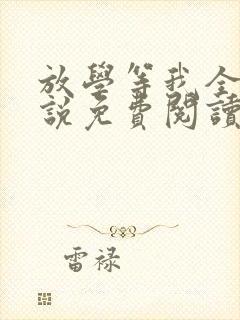 放學等我全
說免費閱讀
雷禄